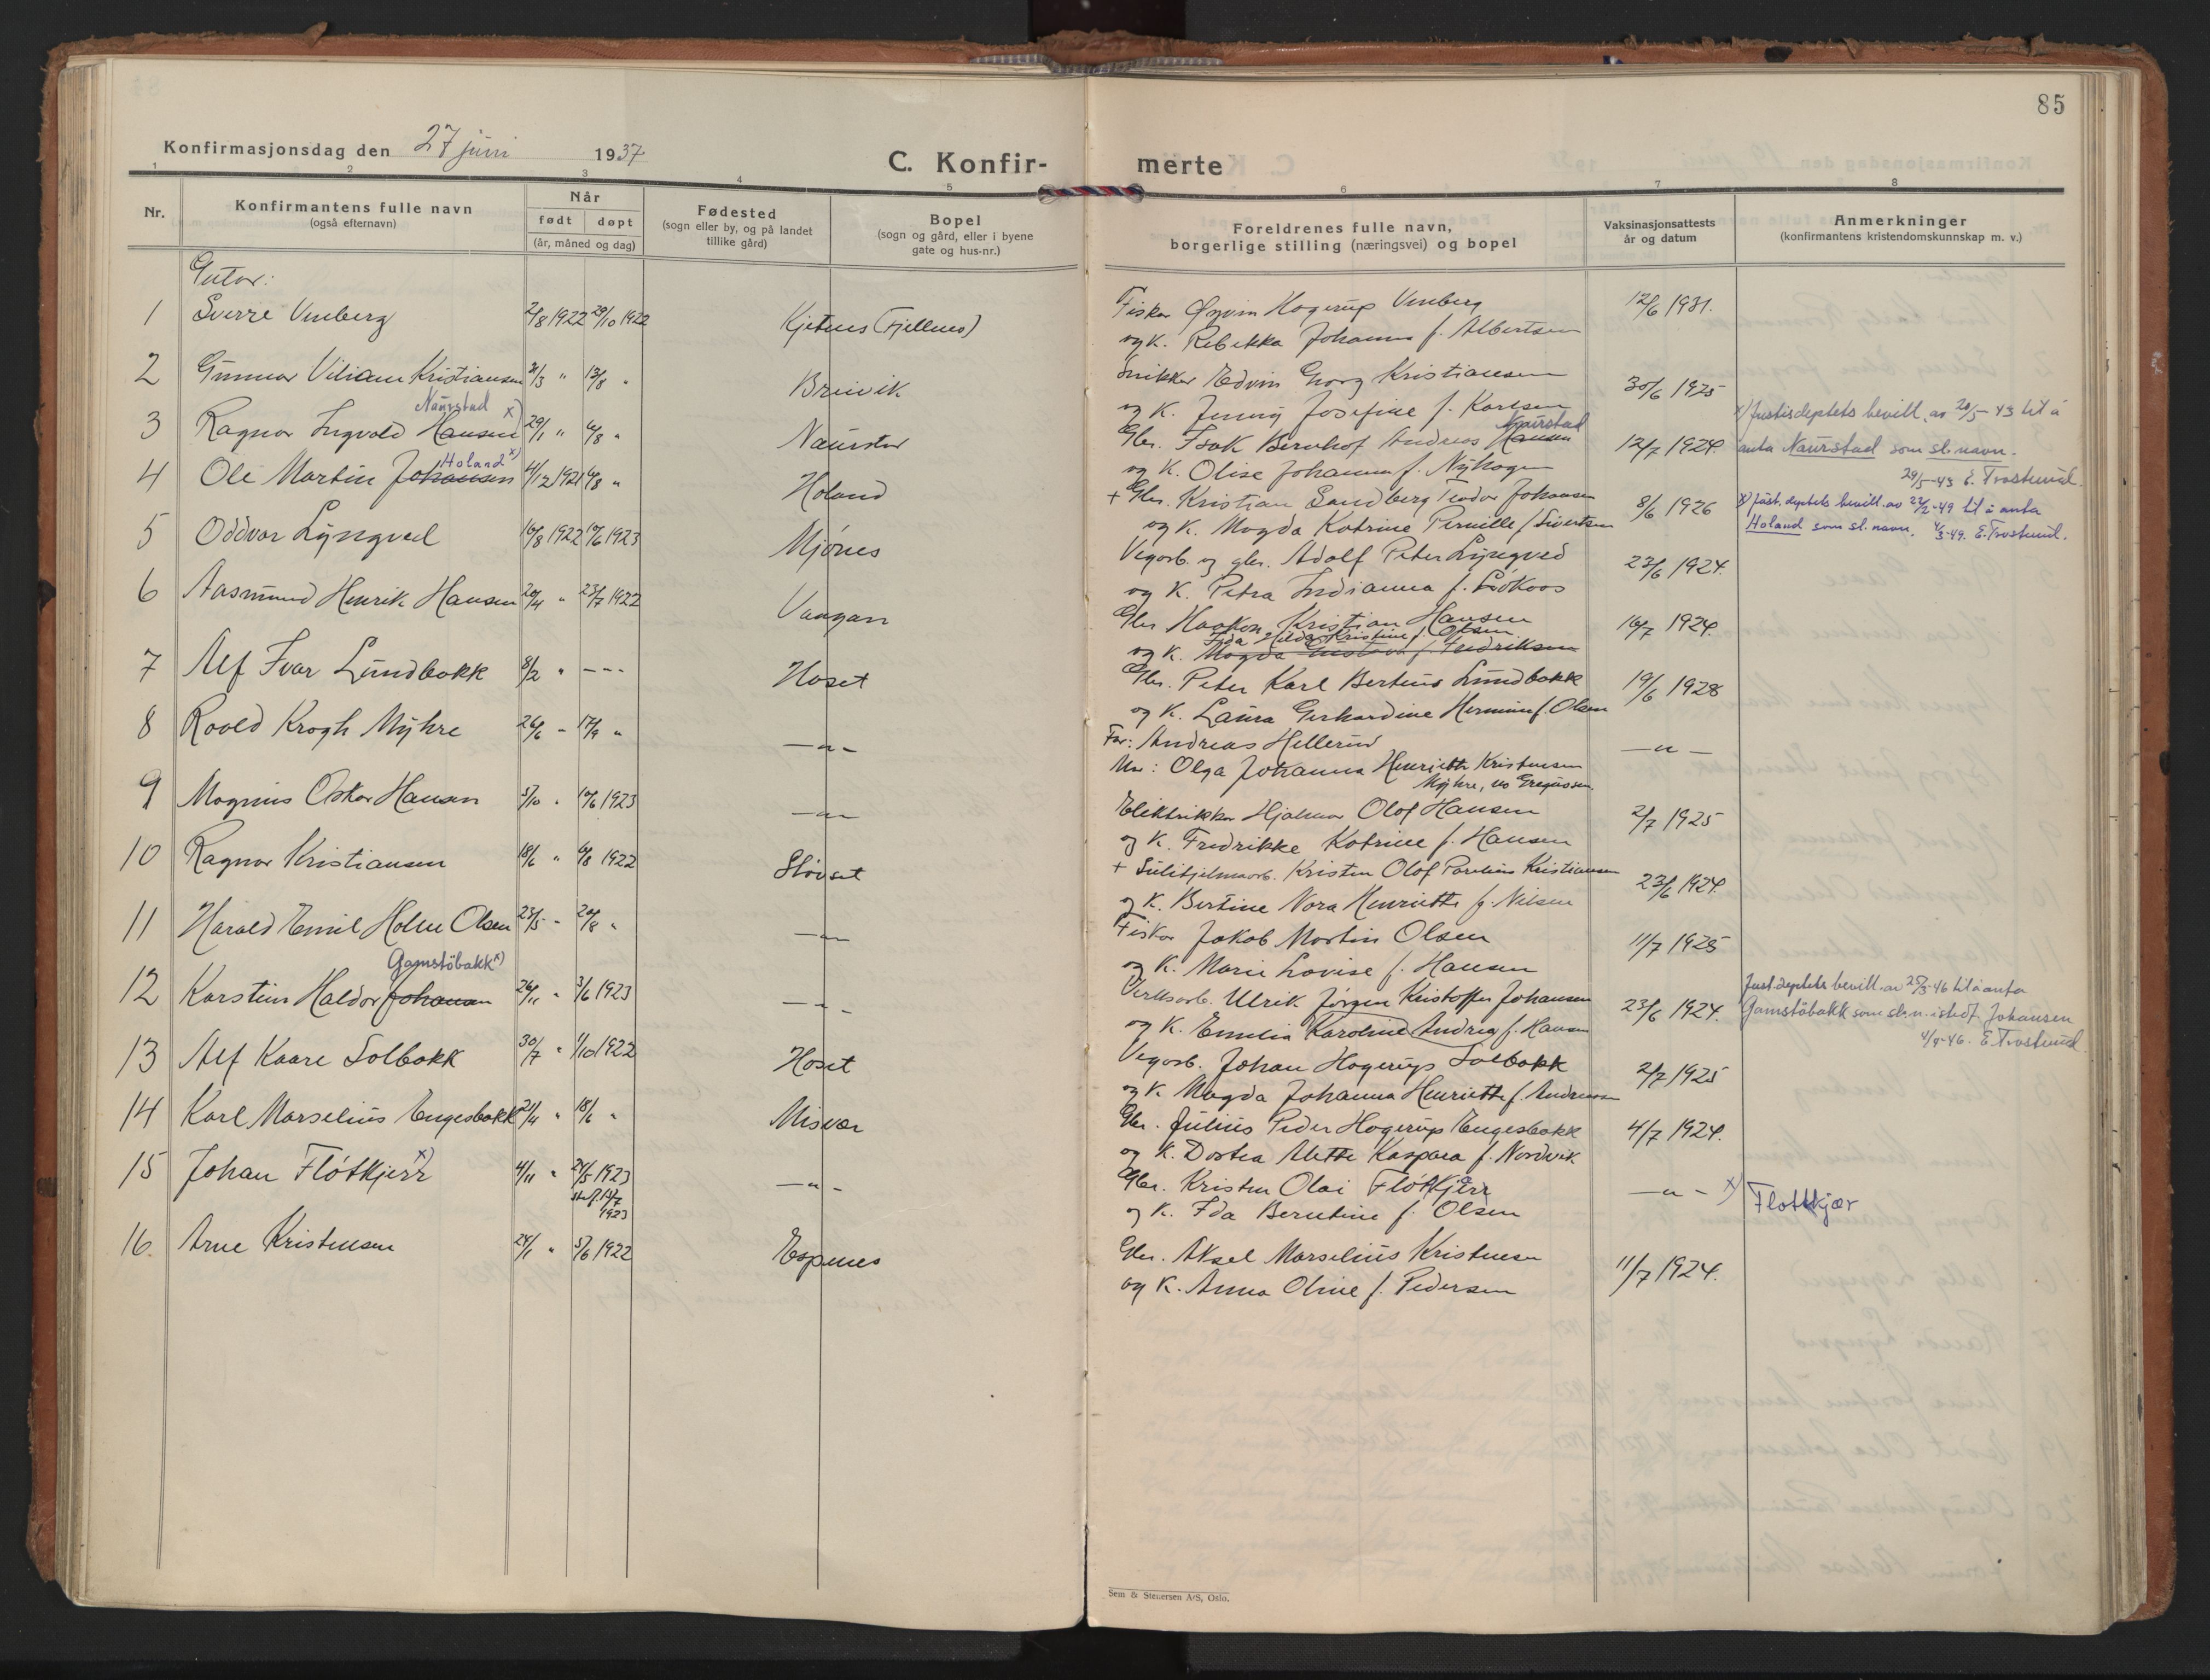 85
Konfirmasjonsdag den 27 juni 1937
C. Konfir- merte
1 2 3 4 5 6 7 8
Nr.
Konfirmantens fulle navn
(også efternavn)
Når
født døpt
(år, måned og dag)
Fødested
(sogn eller by, og på landet
tillike gård)
Bopel
(sogn og gård, eller i byene
gate og hus-nr.)
Foreldrenes fulle navn,
borgerlige stilling (næringsvei) og bopel
Vaksinasjonsattests
år og datum
Anmerkninger
(konfirmantens kristendomskunnskap m. v.)
Gutar:
1 Sverre Venberg 2/8 1922 29/10 1922 Kjetnes (Fjellnes)
Fisker Øyvin Hagerup Venberg 12/6 1931.
og K. Rebekka Johanna f. Albertsen
2 Gunnar Viliam Kristiansen 21/3 " 13/8 " Breivik
Snikker Edvin Georg Kristiansen 30/6 1925
og K. Jenny Josefine f. Karlsen
Naurstad x)
3 Ragnar Ingvald Hansen 29/1 " 6/8 " Naurstad
Naurstad
Gbr. Isak Bernhof Andreas Hansen 12/7 1924.
og K. Olise Johanna f. Nyhagen
x) Justisdeptets bevill. av 20/5-43 til å
anta Naurstad som sl. navn.
29/5-43 E. Trostund.
Holand x)
4 Ole Martin Johansen 4/12 1921 6/8 " Holand
+ Gbr. Kristian Sandberg Teodor Johansen 8/6 1926
og K. Magda Katrine Pernille f. Sivertsen
x) Just. deptets bevill. av 22/2-49 til å anta
Holand som sl. navn. 4/3-49. E. Trostund.
5 Oddvar Lyngved 16/8 1922 10/6 1923 Mjønes
Vegarb. og gbr. Adolf Peter Lyngved 23/6 1924.
og K. Petra Indianna f.
6 Aasmund Henrik Hansen 20/4 " 23/7 1922 Vaagan
Gbr Haakon Kristian Hansen 16/7 1924.
Ida Hilda Kristine f. Olsen
og K. Magda Gustava f. Fredriksen
7 Alf Ivar Lundbakk 8/2 " - - - Høset
Gbr. Peter Karl Berteus Lundbakk 19/6 1928
og K. Laura Gerhardine Hermine f. Olsen
8 Roald Krogh Myhre 26/6 - 17/9 " —"—
Far: Andreas Hellerud —"—
Mor: Olga Johanna Henriette Kristensen
Myhre, no Gregussen.
9 Magnus Oskar Hansen 5/10 " 10/6 1923 —"—
Elektrikker Hjalmar Olaf Hansen 2/7 1925
og K. Fredrikke Katrine f. Hansen
10 Ragnar Kristiansen 18/6 " 6/8 1922 Støvset
+ Sulitjelmaarb. Kristen Olaf Parelius Kristiansen 23/6 1924.
og K. Bertine Nora Henriette f. Nilsen
11 Harald Emil Holm Olsen 23/5 - 20/8 " —"—
Fisker Jakob Martin Olsen 11/7 1925
og K. Marie Lovise f. Hansen
Gamstöbakk x)
12 Karstein Haldor Johansen 26/11 " 3/6 1923 —"—
Verksarb. Ulrik Jørgen Kristoffer Johansen 23/6 1924.
og K. Emelia Karoline Andrea f. Hansen
Just.deptets bevill. av 25/3-46 til å anta
Gamstöbakk som sl.n. istedf. Johansen
4/4-46. E. Trostund.
13 Alf Kaare Solbakk 30/7 " 1/10 1922 Høset
Vegarb. Johan Hagerup Solbakk 2/7 1925
og K. Magda Johanna Henriette f. Andreasen
14 Karl Marselius Engesbakk 21/4 " 18/6 " Misvær
Gbr. Julius Peder Hagerup Engesbakk 4/7 1924.
og K. Dortea Alette Kaspara f. Nordvik
15 Johan Fløtkjerr x) 4/11 " 24/5 1923 —"—
st. f. 14/7
1923
Gbr. Kristen Olai Fløtkjerr —"—
og K. Ida Berntine f. Olsen
x) Flottkjær
16. Arne Kristensen 24/1 " 5/6 1922 Espenes
Gbr. Aksel Marselius Kristensen 11/7 1924.
og K. Anna Oline f. Pedersen
Sem & Stenersen A/S, Oslo.